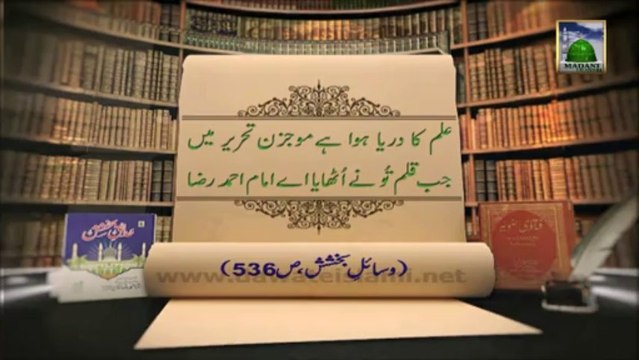 MADANI
علم کا دریا ہوا ہے موجزن تحریر میں
جب قلم تُو نے اُٹھایا اے امام احمد رضا
(وسائلِ بخشش، ص536)
www.dawateislami.net
فتاویٰ رضویہ